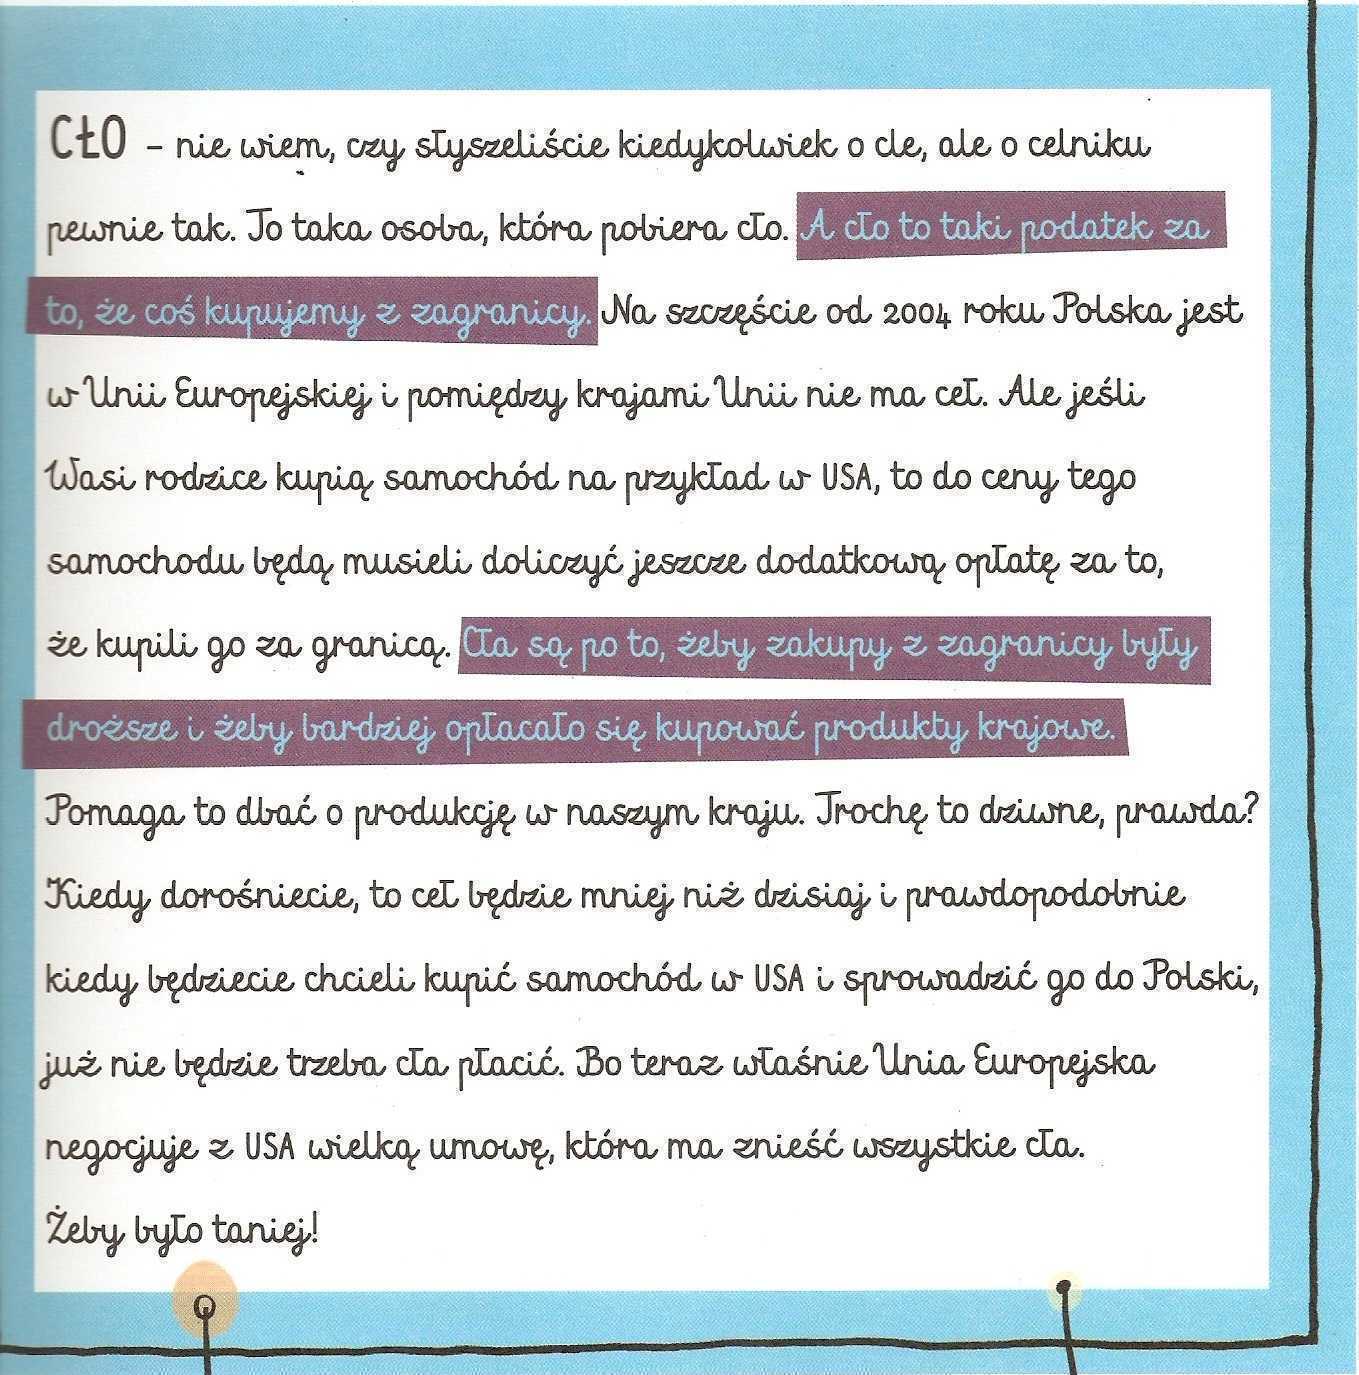 CŁO – nie wiem, czy słyszeliście kiedykolwiek o cle, ale o celniku
pewnie tak. To taka osoba, która pobiera cło. A cło to taki podatek za
to, że coś kupujemy z zagranicy. Na szczęście od 2004 roku Polska jest
w Unii Europejskiej i pomiędzy krajami Unii nie ma ceł. Ale jeśli
Wasi rodzice kupią samochód na przykład w USA, to do ceny tego
samochodu będą musieli doliczyć jeszcze dodatkową opłatę za to,
że kupili go za granicą. Cła są po to, żeby zakupy z zagranicy były
droższe i żeby bardziej opłacało się kupować produkty krajowe.
Pomaga to dbać o produkcję w naszym kraju. Trochę to dziwne, prawda?
Kiedy dorośniecie, to ceł będzie mniej niż dzisiaj i prawdopodobnie
kiedy będziecie chcieli kupić samochód w USA i sprowadzić go do Polski,
już nie będzie trzeba cła płacić. Bo teraz właśnie Unia Europejska
negocjuje z USA wielką umowę, która ma znieść wszystkie cła.
Żeby było taniej!